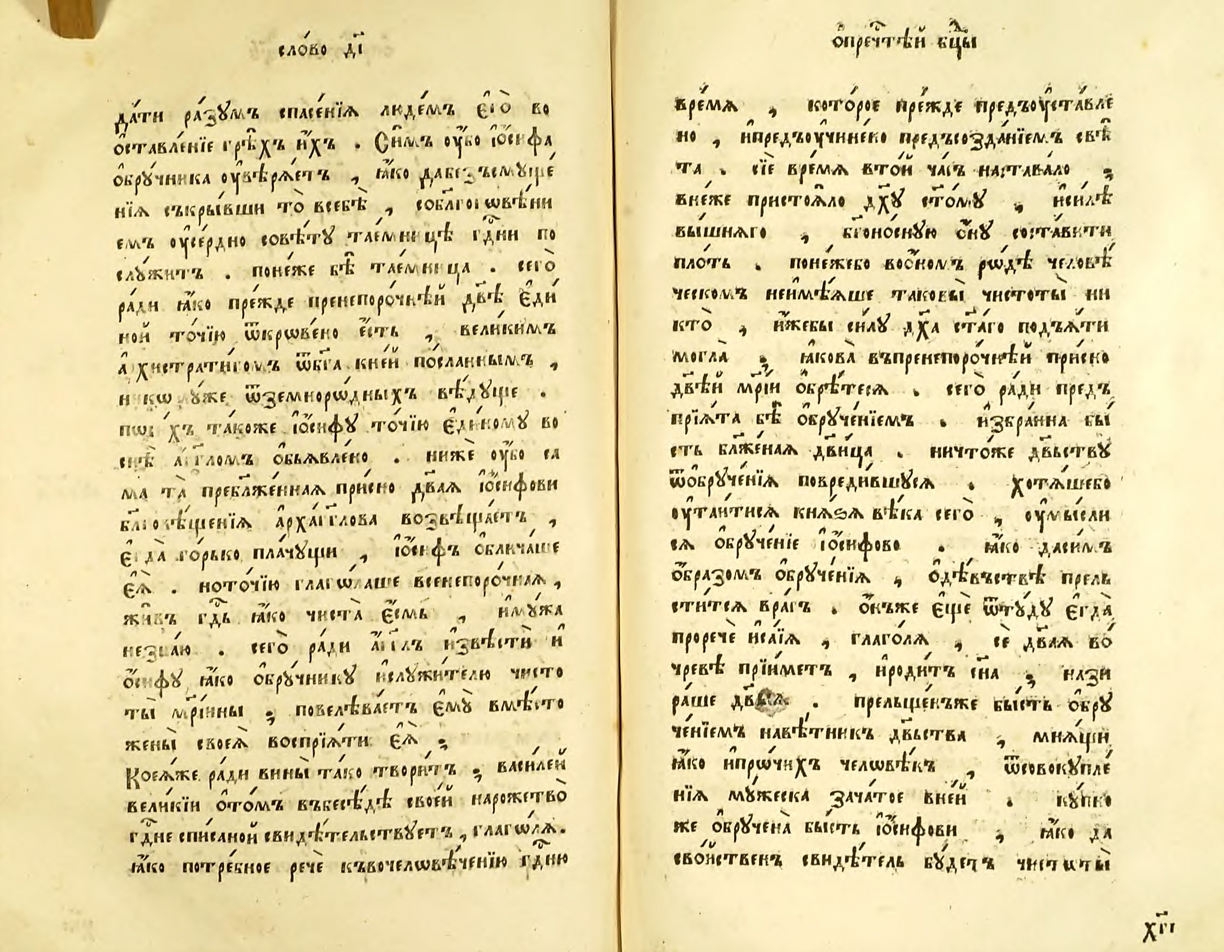 сло́во д҃і
да́ти ра́зꙋмъ спасе́нїѧ люде́мъ є҆го̀ во
ѡ҆ставле́нїе грѣ́хъ и҆́хъ . Си́мъ ᲂу҆́бо і҆ѡ́сифа
ѻ҆брꙋ́чника ᲂу҆вѣрѧ́етъ , ꙗ҆́ко дабезъсмꙋще
нїѧ съкры́вши то̀ всебѣ̀ , собл҃гогѡвѣ́ни
емъ ᲂу҆се́рдно совѣ́тꙋ таемницѣ гд҃ни по
слꙋ́житъ . поне́же бѣ̀ тае́мница . сего̀
ра́ди ꙗ҆́ко пре́жде пренепоро́чнѣй дв҃ѣ є҆ди
ной то́чїю ѿкрове́но є҆́сть , вели́кимъ
а҆рхистрати́гомъ ѿбг҃а кне́й по́сланнымъ ,
никомꙋ́же ѿземноро́дныхъ вѣ́дꙋще .
та́коже і҆ѡ́сифꙋ то́чїю є҆ди́номꙋ во
снѣ̀ а҆́гг҃ломъ ѻ҆бъѧвле́но . нижѐ ᲂу҆́бо са
ма та̀ пребл҃же́ннаѧ при́сно дв҃аѧ і҆ѡ́сифови
бл҃говѣ́щенїѧ а҆рха́гг҃лова возвѣща́етъ ,
є҆гда̀ го́рько пла́чꙋщи , і҆ѡ́сифъ ѡ҆блича́ше
є҆ѧ̀ . ното́чїю глаго́лаше всенепоро́чнаѧ ,
жи́въ гд҃ь ꙗ҆́ко чиста̀ є҆́смь , и҆мꙋ́жа
незна́ю . сего̀ ра́ди а҆́гг҃лъ и҆звѣстѝ и҆
ѡ҆́сифꙋ ꙗ҆́ко ѻ҆брꙋ́чникꙋ и҆слꙋжи́телю чисто
ты̀ мр҃і́ины ; повелѣва́етъ є҆мꙋ̀ вмѣ́сто
жены̀ своеѧ̀ воспрїѧ́ти є҆ѧ̀ ;
Коеѧ́же ра́ди вины̀ та́ко твори́тъ ; васи́лей
вели́кїи ѻ҆то́мъ въбесѣ́дѣ свое́й на рожество̀
гд҃не спи́саной свидѣ́тельствꙋетъ , глаго́лѧ .
ꙗ҆́ко потре́бное речѐ къвочелѡвѣ́ченїю гд҃ню
ѡ҆пречⷭ҇тѣй бц҃ы
вре́мѧ , кото́рое пре́жде предъᲂу҆ста́вле
но , и҆предъᲂу҆чине́но предъсозда́нїемъ свѣ́
та . сїѐ вре́мѧ вто́й ча́съ настава́ло ;
вне́же присто́ѧло дх҃ꙋ ст҃о́мꙋ , и҆си́лѣ
вы́шнѧго , бг҃оно́снꙋю ѻ҆́нꙋ соста́вити
пло́ть . поне́жебо восно́мъ ро́дѣ человѣ́
ческомъ неимѣ́ѧше таковы̀ чистоты̀ ни
кто̀ , и҆́жебы си́лꙋ дх҃а ст҃а́го подъѧ́ти
могла̀ ; ꙗ҆кова̀ въпренепоро́чнѣй при́сно
дв҃ѣ́й мр҃і́и ѻ҆брѣ́тесѧ . сего̀ ра́ди предъ
прїѧта бѣ̀ ѻ҆брꙋче́нїемъ . и҆збра́нна бы́
сть бл҃же́наѧ дв҃и́ца . ничто́же дв҃ьствꙋ
ѿѻ҆брꙋче́нїѧ повреди́вшꙋсѧ . хотѧ́щебо
ᲂу҆таи́тисѧ кнѧ́ѕѧ вѣ́ка сего̀ , ᲂу҆мысли
сѧ ѻ҆брꙋче́нїе і҆ѡ́сифово . ꙗ҆́ко даси́мъ
ѻ҆́бразомъ ѻ҆брꙋче́нїѧ , ѻ҆дѣ́въствѣ прель
сти́тсѧ вра́гъ . ѻ҆не́мъже є҆щѐ ѿтꙋ́дꙋ є҆гда̀
проречѐ и҆са́їѧ , глаго́лѧ , сѐ дв҃аѧ во
чре́вѣ прїи́метъ , и҆роди́тъ сн҃а ; нази
ра́ше дв҃ыѧ . прельще́нъже бы́сть ѻ҆брꙋ
че́нїемъ навѣ́тникъ дв҃ьства ; мнѧ́щи
ꙗ҆́ко и҆про́чихъ человѣ́къ , ѿсовокꙋпле́
нїѧ мꙋ́жеска зача́тое вне́й . кꙋ́пно
же ѻ҆брꙋчена̀ бы́сть і҆ѡ́сифови ; ꙗ҆́ко да
сво́йственъ свидѣ́тель бꙋ́детъ чистоты̀